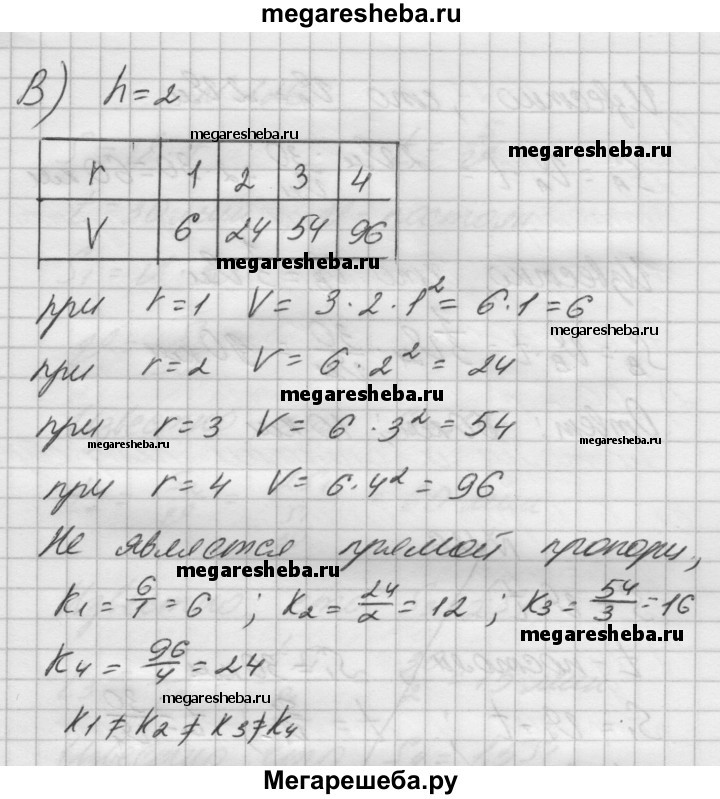 megaresheba.ru
В) h=2
megaresheba.ru
megaresheba.ru
r 1 2 3 4
V 6 24 54 96
megaresheba.ru
при r=1 V= 3·2·1² = 6·1=6
megaresheba.ru
при r=2 V= 6·2² = 24
megaresheba.ru
при r=3 V= 6·3² = 54
megaresheba.ru
megaresheba.ru
при r=4 V=6·4² = 96
Не является прямой пропорц,
megaresheba.ru
K1 = 6/1 = 6 ; K2 = 24/2 = 12 ; K3 = 54/3 = 16
megaresheba.ru
K4 = 96/4 = 24
megaresheba.ru
K1 ≠ K2 ≠ K3 ≠ K4
Мегарешеба.ру